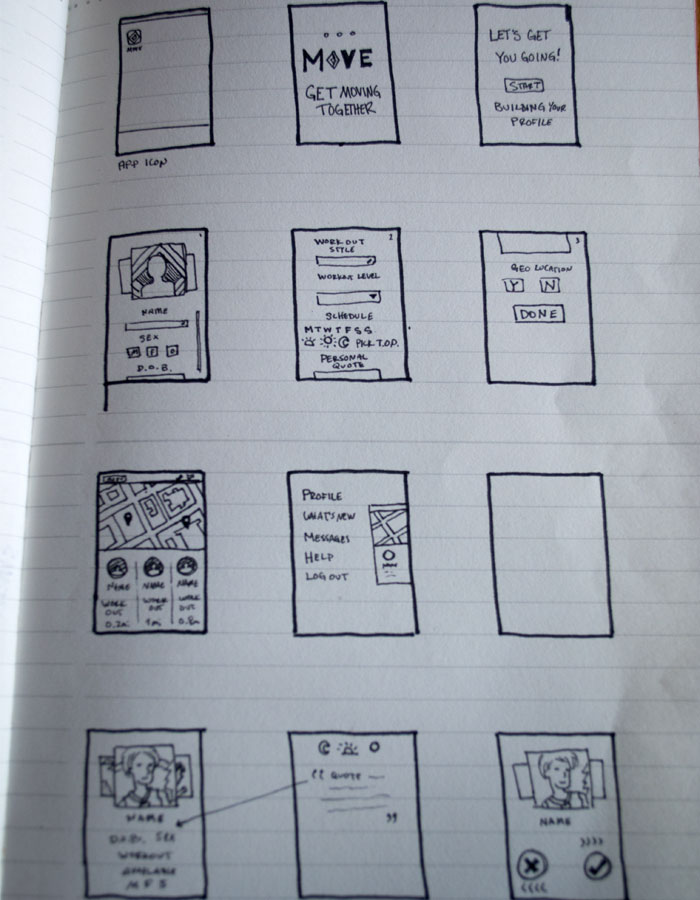 MOVE
APP ICON
MOVE
GET MOVING
TOGETHER
LET'S GET
YOU GOING!
START
BUILDING YOUR
PROFILE
NAME
SEX
M F O
D.O.B.
2
WORKOUT
STYLE
WORKOUT LEVEL
SCHEDULE
M T W T F S S
PICK T.O.D.
PERSONAL
QUOTE
3
GEO LOCATION
Y N
DONE
NAME NAME NAME
WORK WORK WORK
OUT OUT OUT
0.2mi 1mi 0.8m
PROFILE
WHAT'S NEW
MESSAGES
HELP
LOG OUT
NAME
D.O.B. SEX
WORKOUT
AVAILABLE
M F S
“ QUOTE
”
NAME
>>>>
<<<<